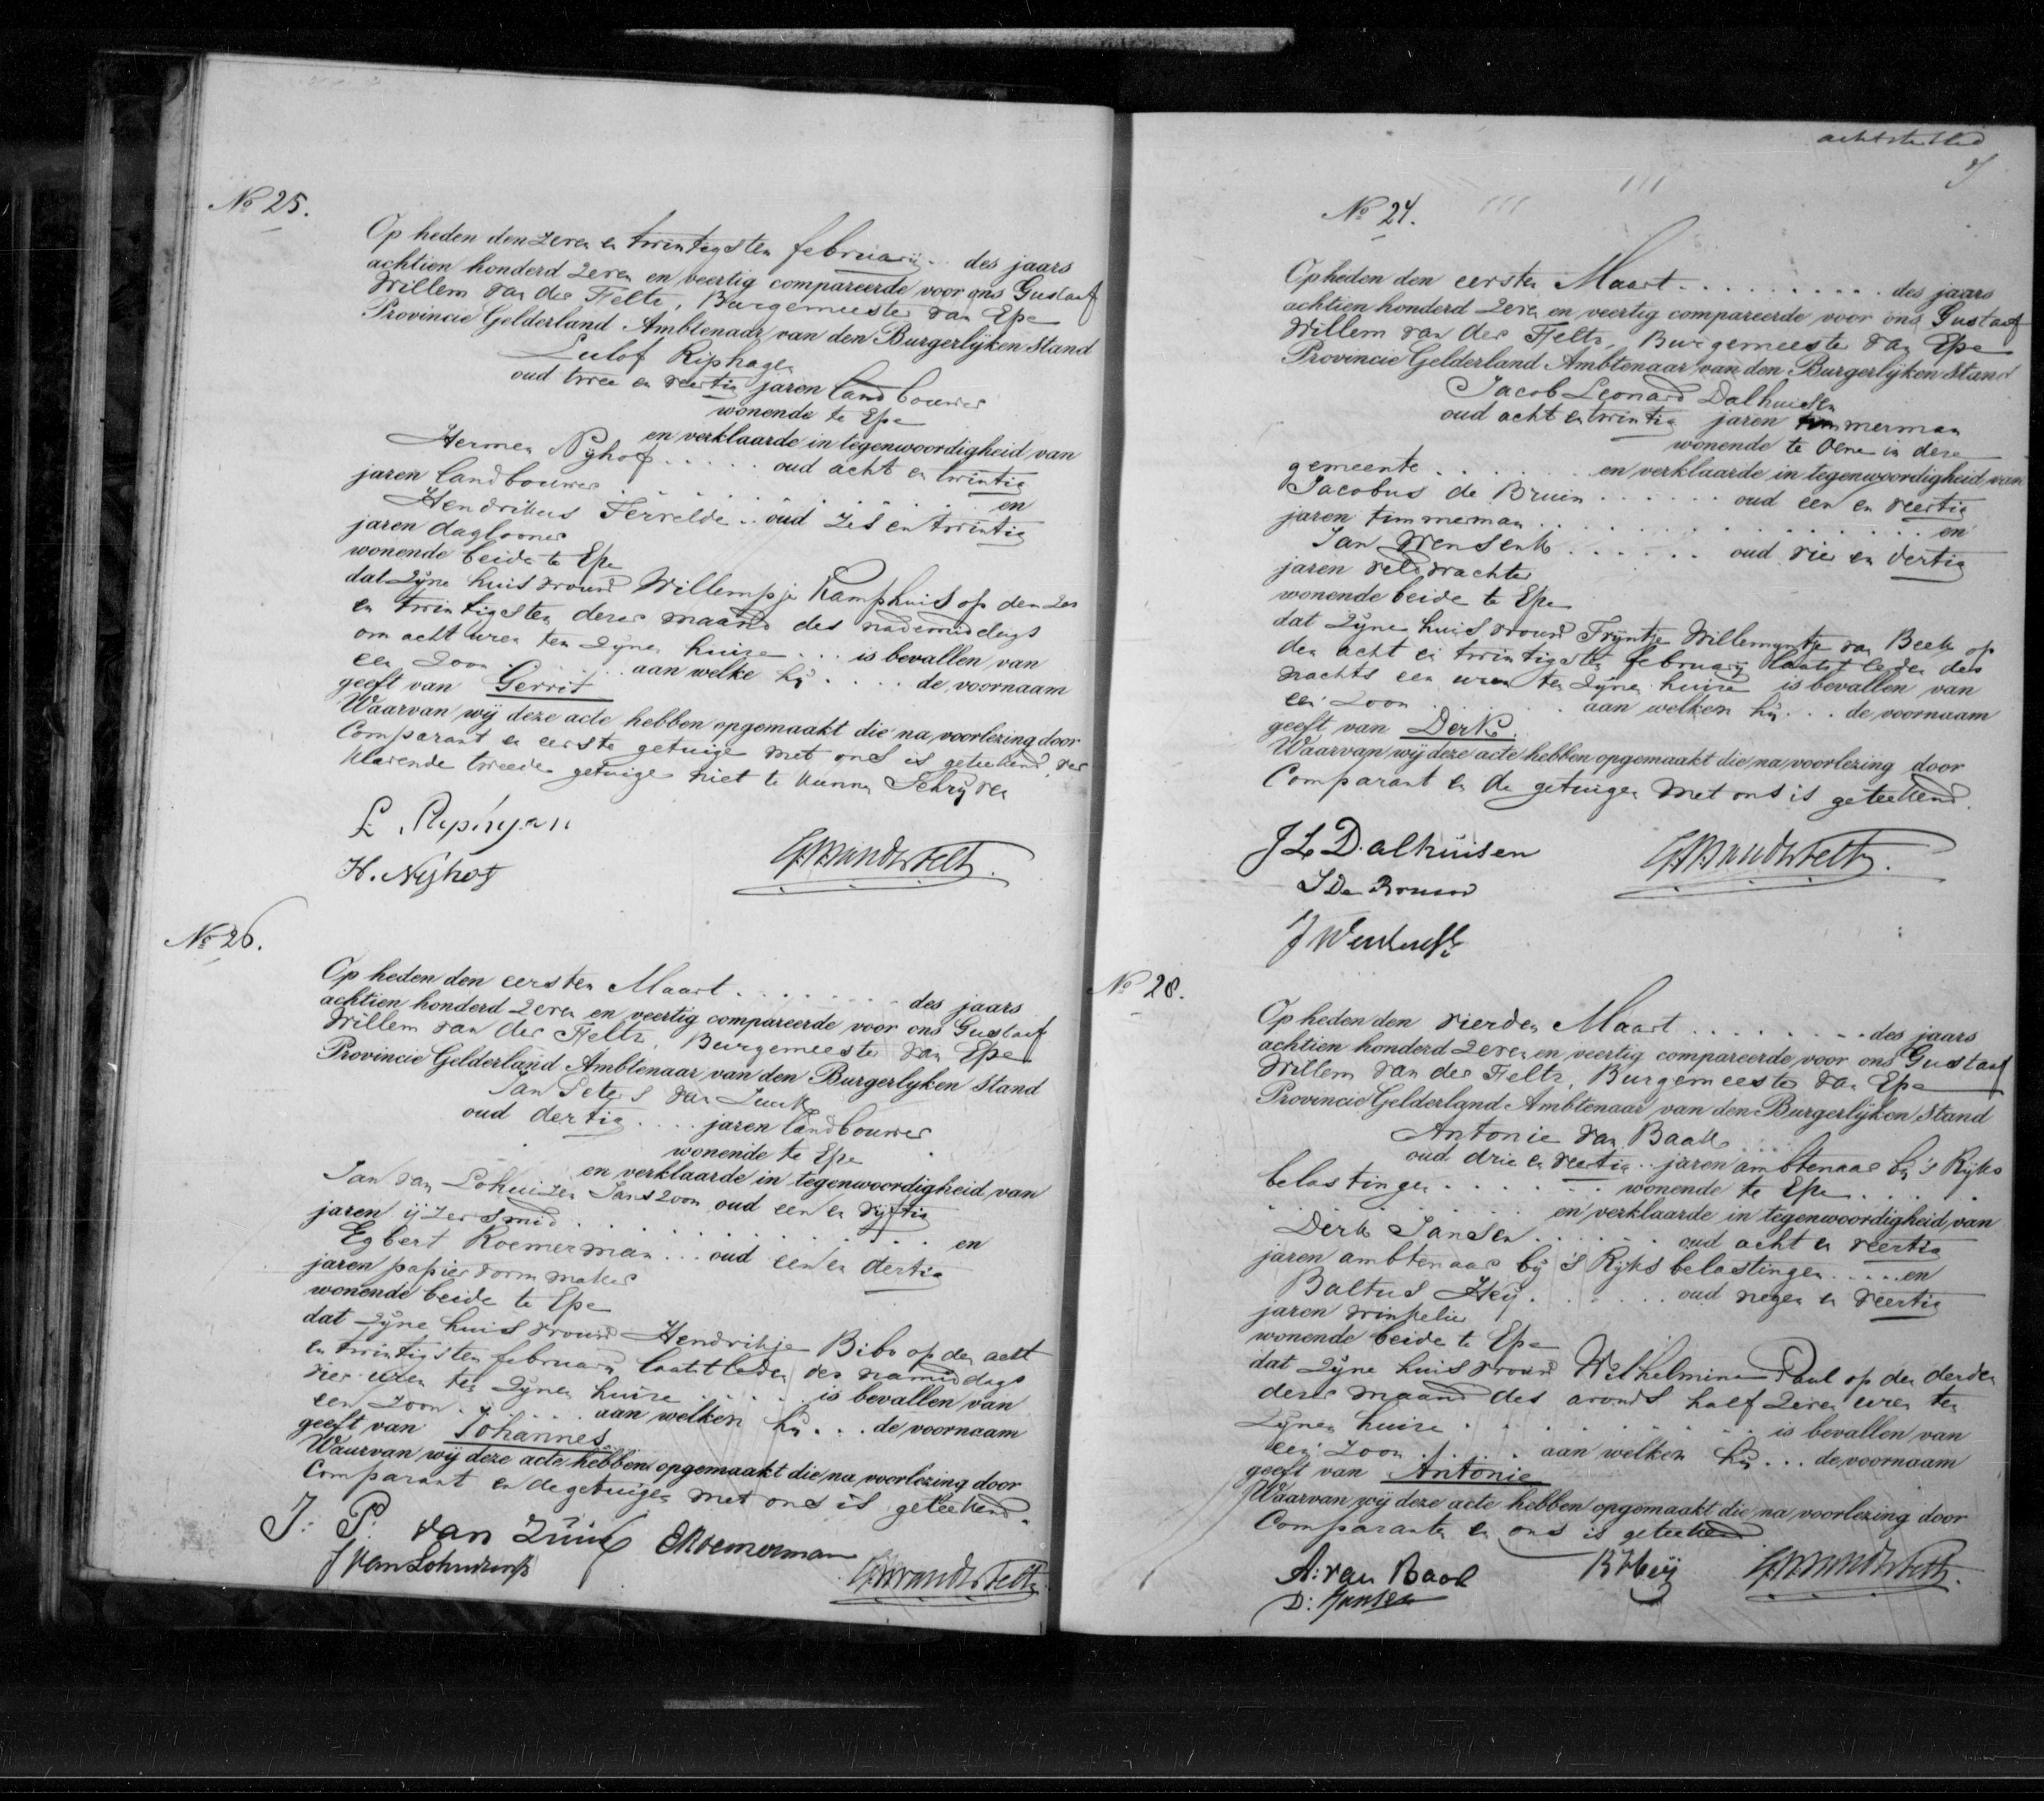 No 25.
Op heden den zeven en twintigsten februarij .. des jaars
achtien honderd zeven en veertig compareerde voor ons Gustaaf
Willem van der Feltz, Burgemeester van Epe
Provincie Gelderland Ambtenaar van den Burgerlijken Stand
Lulof Riphagen
oud twee en veertig jaren landbouwer
wonende te Epe
en verklaarde in tegenwoordigheid van
Hermen Nijhof ..... oud acht en twintig
jaren landbouwer ....... en
Hendrikus Tervelde .. oud zes en twintig
jaren daglooner
wonende beide te Epe
dat zijne huisvrouw Willempje Kamphuis op den zes
en twintigsten dezer maand des nademiddags
om acht uren ten zijnen huize ... is bevallen van
een zoon ..... aan welke hij .... de voornaam
geeft van Gerrit
Waarvan wij deze acte hebben opgemaakt die na voorlezing door
Comparant en eerste getuige met ons is geteekend, ver
klarende tweede getuige niet te kunnen Schrijven
H. Nijhof
GWvanderFeltz.
No 26.
Op heden den eersten Maart ........ des jaars
achtien honderd zeven en veertig compareerde voor ons Gustaaf
Willem van der Feltz, Burgemeester van Epe
Provincie Gelderland Ambtenaar van den Burgerlyken Stand
Jan Peters van Zuuk
oud dertig .... jaren landbouwer
wonende te Epe
en verklaarde in tegenwoordigheid van
Jan van Lohuizen Janszoon oud een en vijftig
jaren ijzersmid ......... en
Egbert Roemerman ... oud een en dertig
jaren papiervormmaker
wonende beide te Epe
dat zijne huisvrouw Hendrikje Bibo op den acht
en twintigsten februarij laatstleden des namiddags
vier uren ten zijnen huize ..... is bevallen van
een zoon ...... aan welken hij ... de voornaam
geeft van Johannes
Waarvan wij deze acte hebben opgemaakt die na voorlezing door
Comparant en de getuigen met ons is geteekend.
J: P: van Zuuk ERoemerman
J van Lohuizen
GWvanderFeltz
achtste blad
No 27.
Op heden den eersten Maart .......... des jaars
achtien honderd zeven en veertig compareerde voor ons Gustaaf
Willem van der Feltz, Burgemeester van Epe
Provincie Gelderland Ambtenaar van den Burgerlijken Stand
Jacob Leonard Dalhuisen
oud acht en twintig jaren timmerman
wonende te Oene in deze
gemeente ...... en verklaarde in tegenwoordigheid van
Jacobus de Bruin ...... oud een en veertig
jaren timmerman ............ en
Jan Wensenk ...... oud vier en dertig
jaren veldwachter
wonende beide te Epe
dat zijne huisvrouw Trijntje Willemyntje van Beek op
den acht en twintigsten februarij laatstleden des
nachts een uren ten zijnen huize is bevallen van
een zoon ...... aan welken hij ... de voornaam
geeft van Derk.
Waarvan wij deze acte hebben opgemaakt die na voorlezing door
Comparant en de getuigen met ons is geteekend.
J L Dalhuisen
J De Bruin
GWvanderFeltz.
No 28.
Op heden den vierden Maart ........ des jaars
achtien honderd zeven en veertig compareerde voor ons Gustaaf
Willem van der Feltz, Burgemeester van Epe
Provincie Gelderland Ambtenaar van den Burgerlijken Stand
Antonie van Baak
oud drie en veertig .. jaren ambtenaar bij 's Rijks
belastingen ....... wonende te Epe ....
en verklaarde in tegenwoordigheid van
Derk Jansen ...... oud acht en veertig
jaren ambtenaar bij 's Rijks belastingen ..... en
Baltus Heij ....... oud negen en veertig
jaren winkelier
wonende beide te Epe
dat zijne huisvrouw Wilhelmina Paul op den derden
dezer maand des avonds half zeven uren ten
zijnen huize ........... is bevallen van
een zoon ...... aan welken hij ... de voornaam
geeft van Antonie
Waarvan wij deze acte hebben opgemaakt die na voorlezing door
Comparanten en ons is geteekend
A: van Baak B Heij GWvanderFeltz.
D: Jansen